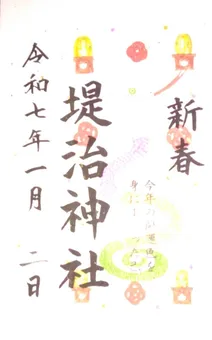 新春
今年の
身に
堤治神社
令和七年一月二日